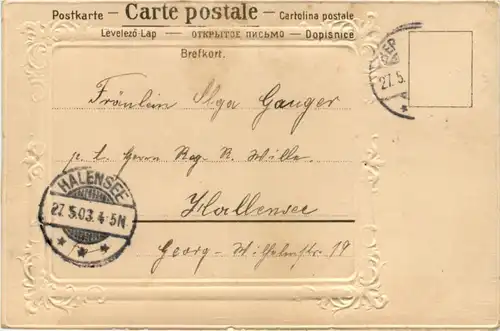 Postkarte – Carte postale – Cartolina postale
Levelező-Lap — ОТКРЫТОЕ ПИСЬМО — Dopisnice
Brefkort.
27.5.
Fräulein Olga Gauger
p. l. Herrn Reg. R. Wille
HALENSEE
27.5.03. 4-5N
Hallensee
Georg-Wilhelmstr. 19